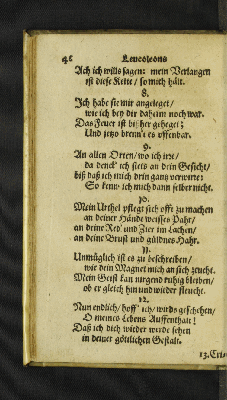 48 Leucoleons
Ach ich wills sagen: mein Verlangen
ist diese Kette / so mich hält.
8.
Ich habe sie mir angeleget /
wie ich bey dir daheim noch war.
Das Feuer ist bißher geheget;
Und jetzo brenn't es offenbar.
9.
An allen Orten / wo ich irre /
da denck' ich stets an dein Gesicht /
biß daß ich mich drin gantz verwirre;
So kenn' ich mich dann selber nicht.
10.
Mein Urthel pflegt sich offt zu machen
an deiner Hände weisses Pahr /
an deine Red' und Zier im Lachen /
an deine Brust und güldnes Hahr.
11.
Unmüglich ist es zu beschreiben /
wie dein Magnet mich an sich zeucht.
Mein Geist kan nirgend ruhig bleiben /
ob er gleich hin und wieder fleucht.
12.
Nun endlich / hoff' ich / wirds geschehen /
O meines Lebens Auffenthalt!
Daß ich dich wieder werde sehen
in deiner göttlichen Gestalt.